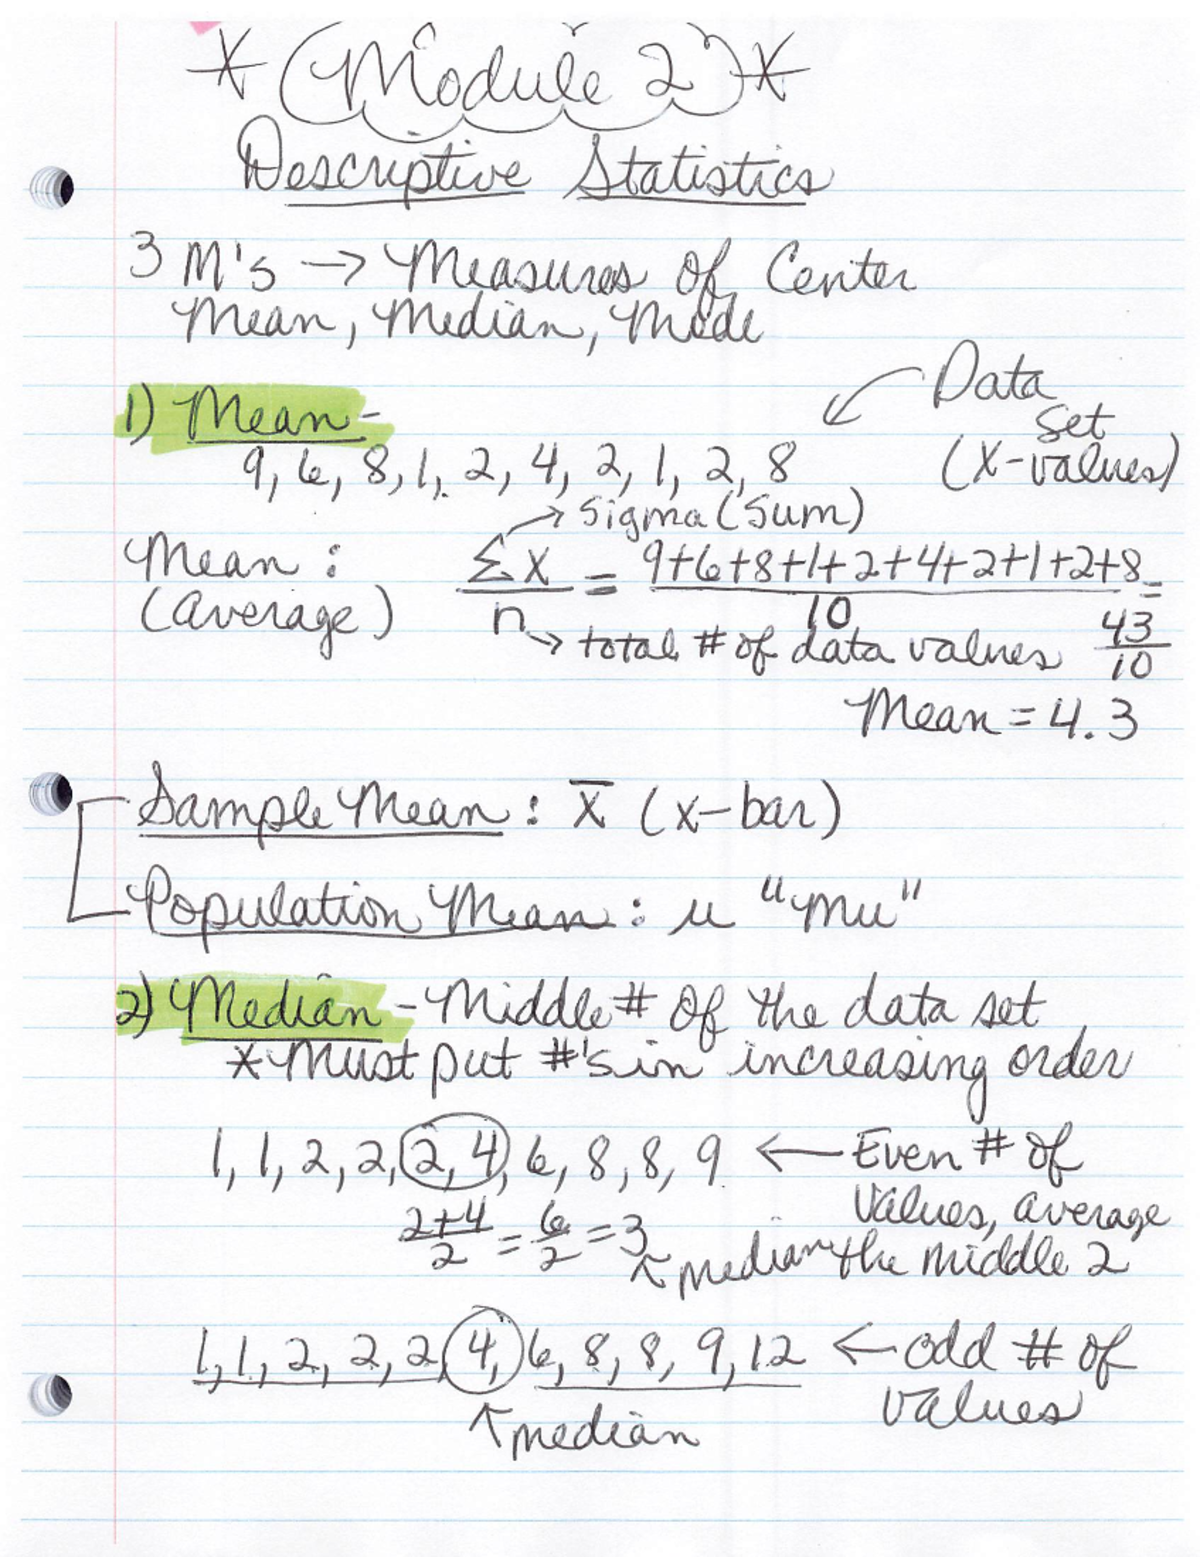 * (Module 2) *
Descriptive Statistics
3 M's → Measures of Center
Mean, Median, Mode
1) Mean-
Data
Set
(X-values)
9, 6, 8, 1, 2, 4, 2, 1, 2, 8
→ Sigma (Sum)
Mean :
(average)
Σx/n = 9+6+8+1+2+4+2+1+2+8/10 = 43/10
→ total # of data values
Mean = 4.3
Sample Mean : x̄ (x-bar)
Population Mean : μ "mu"
2) Median - Middle # of the data set
* Must put #'s in increasing order
1, 1, 2, 2, 2, 4, 6, 8, 8, 9 ← Even # of
values, average
the middle 2
2+4/2 = 6/2 = 3
↖ median
1, 1, 2, 2, 2, 4, 6, 8, 8, 9, 12 ← odd # of
values
↖ median